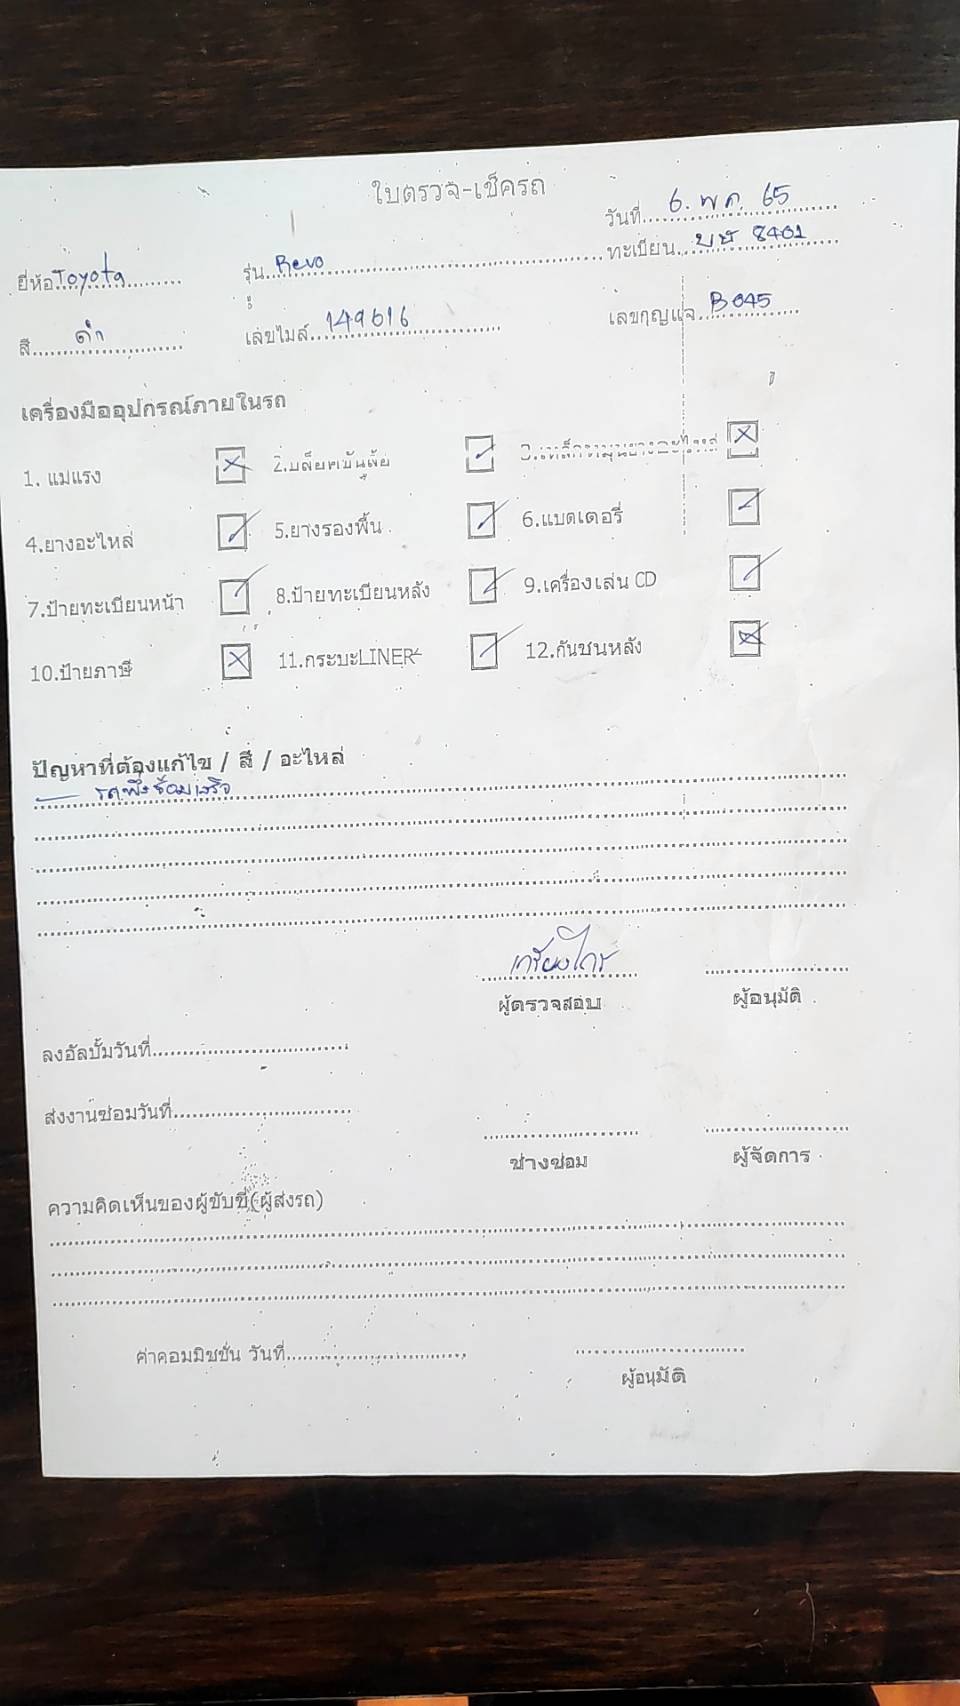 ใบตรวจ-เช็ครถ
วันที่ 6. พ.ค. 65
ยี่ห้อ Toyota รุ่น Revo ทะเบียน 8401
สี ดำ เลขไมล์ 149616 เลขกุญแจ B 045
เครื่องมืออุปกรณ์ภายในรถ
1. แม่แรง ☒ 2.บล็อคขันล้อ ☑ ☒
4.ยางอะไหล่ ☑ 5.ยางรองพื้น ☑ 6.แบตเตอรี่ ☑
7.ป้ายทะเบียนหน้า ☑ 8.ป้ายทะเบียนหลัง ☑ 9.เครื่องเล่น CD ☑
10.ป้ายภาษี ☒ 11.กระบะLINER ☑ 12.กันชนหลัง ☒
ปัญหาที่ต้องแก้ไข / สี / อะไหล่
- รถพึ่งซ้อมเสร็จ
เกรียงไกร
ผู้ตรวจสอบ ผู้อนุมัติ
ลงอัลบั้มวันที่
ส่งงานซ่อมวันที่
ช่างซ่อม ผู้จัดการ
ความคิดเห็นของผู้ขับขี่(ผู้ส่งรถ)
ค่าคอมมิชชั่น วันที่
ผู้อนุมัติ